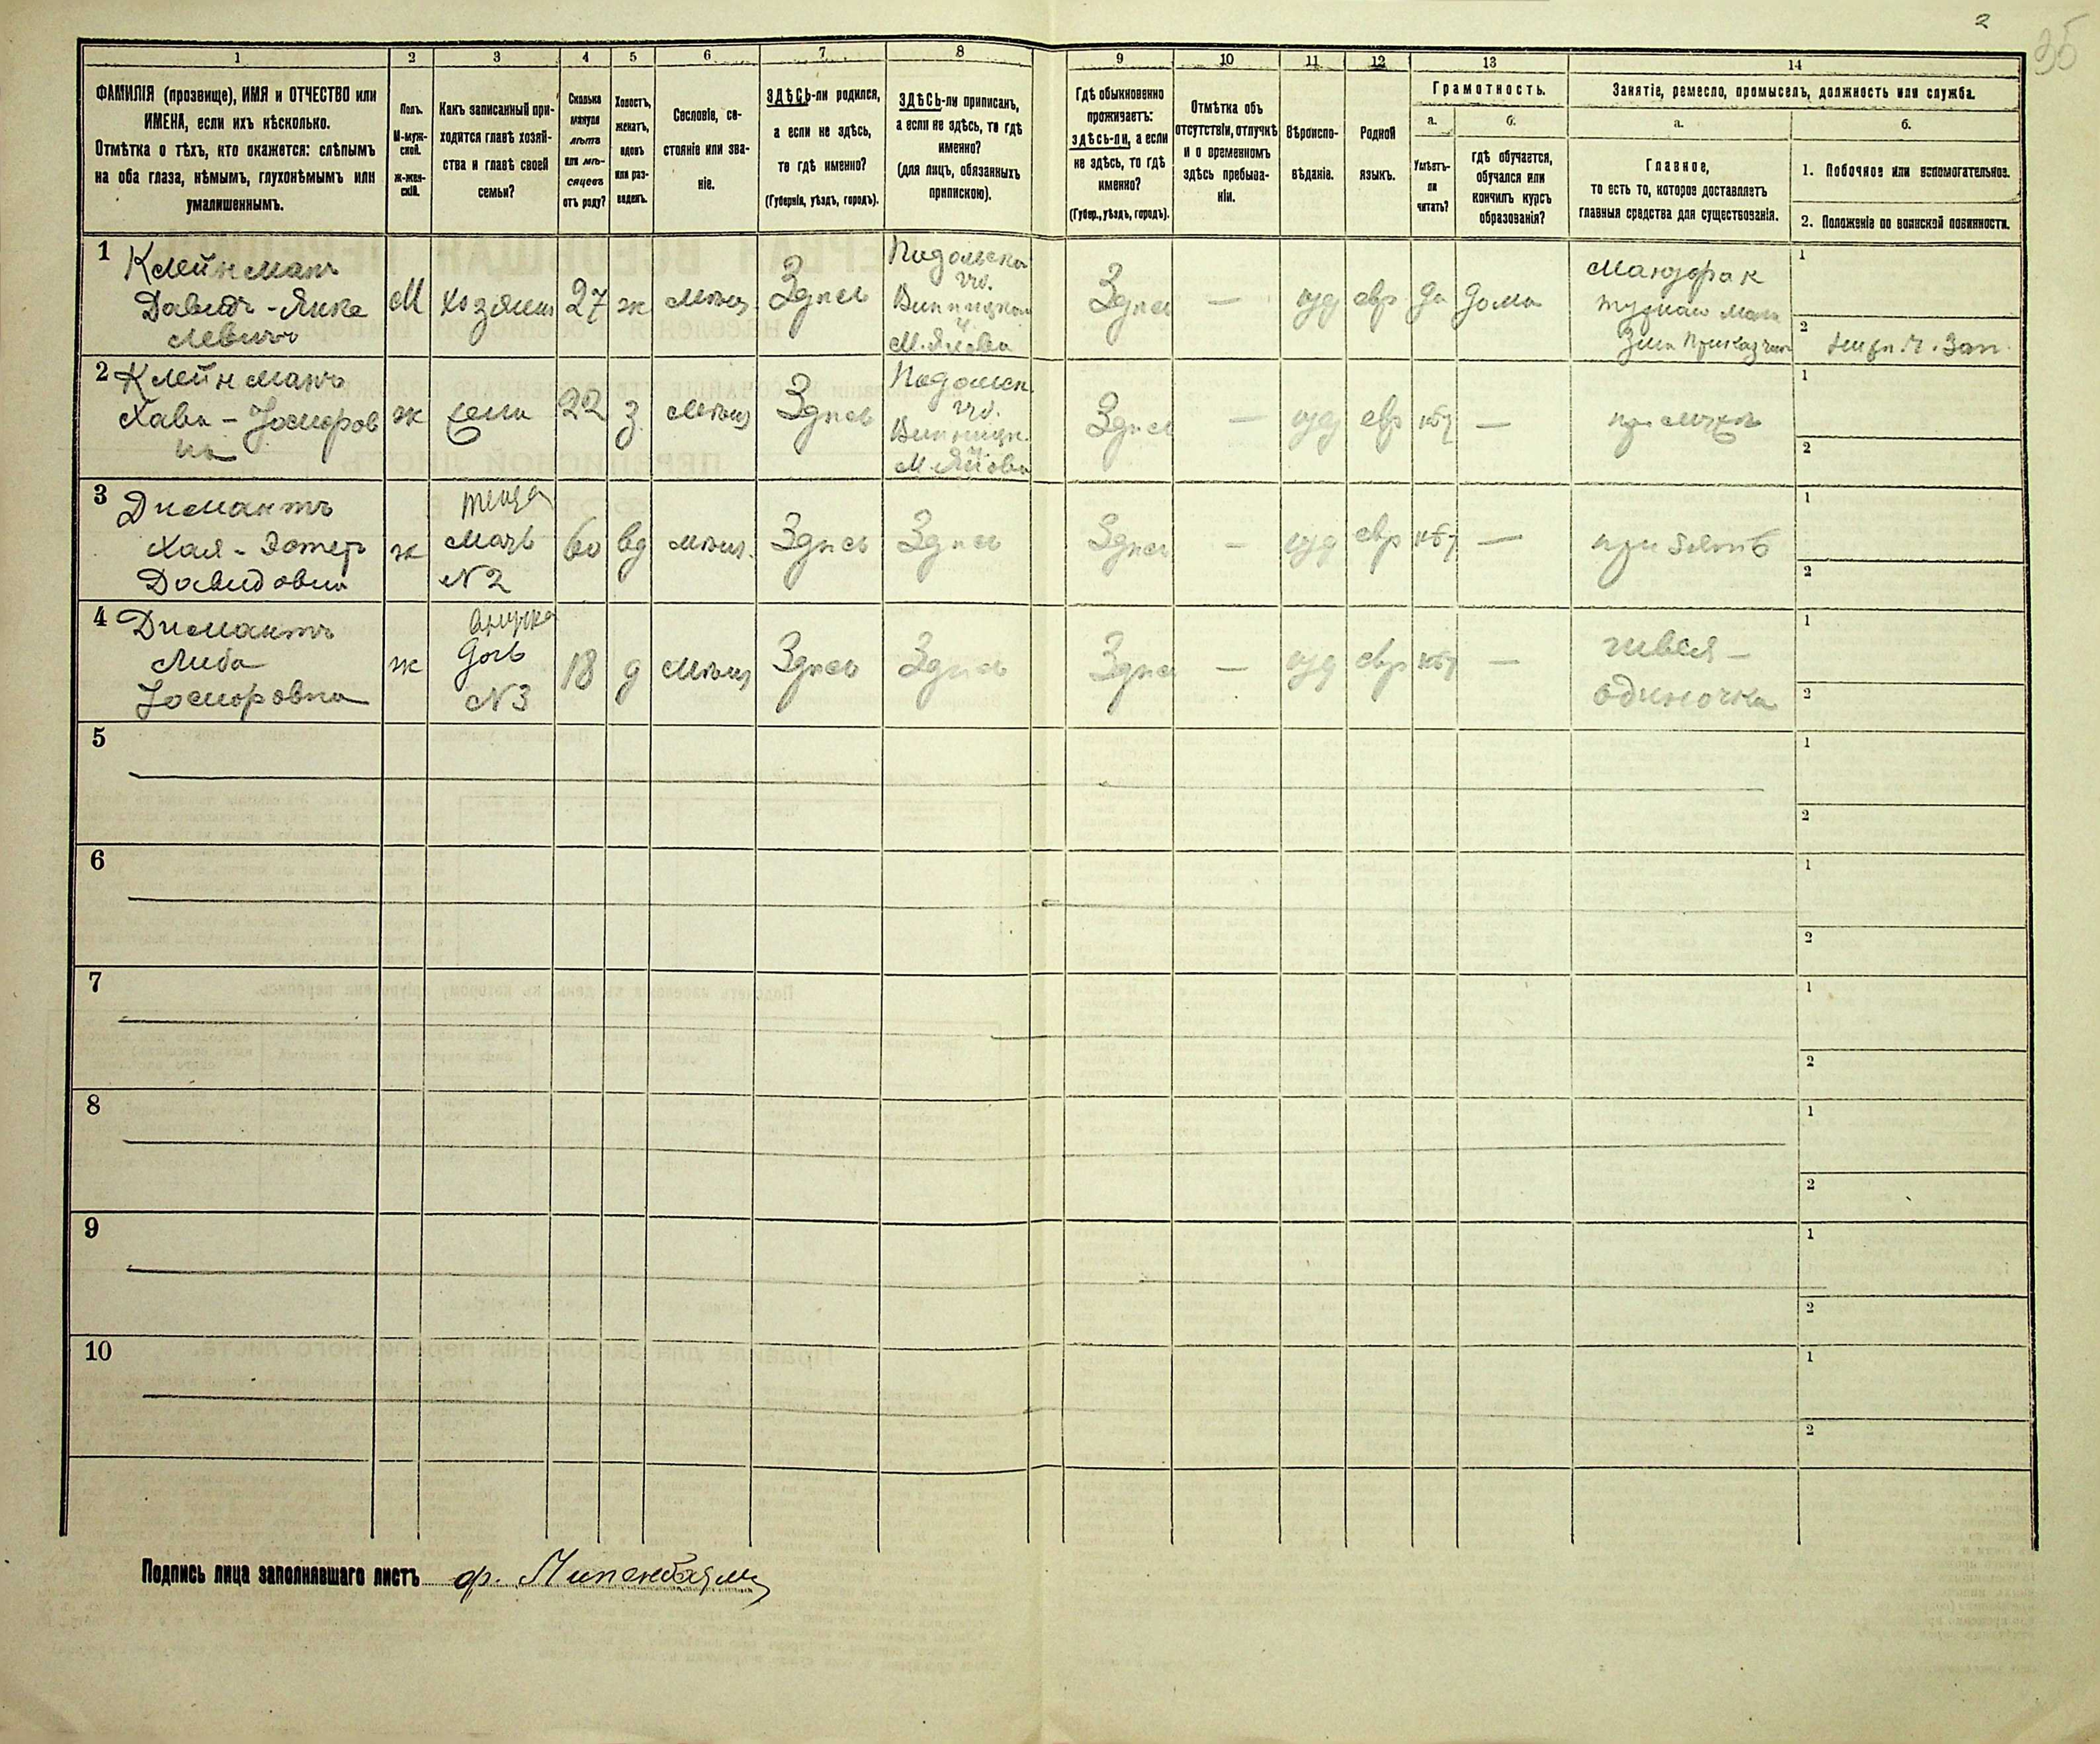 2
35
1
2
3
4
5
6
7
8
9
10
11
12
13
14
ФАМИЛІЯ (прозвище), ИМЯ и ОТЧЕСТВО или
ИМЕНА, если ихъ нѣсколько.
Отмѣтка о тѣхъ, кто окажется: слѣпымъ
на оба глаза, нѣмымъ, глухонѣмымъ или
умалишеннымъ.
Полъ.
М-муж-
ской.
ж-жен-
скій.
Какъ записанный при-
ходится главѣ хозяй-
ства и главѣ своей
семьи?
Сколько
минуло
лѣтъ
или мѣ-
сяцевъ
отъ роду?
Холостъ,
женатъ,
вдовъ
или раз-
веденъ.
Сословіе, со-
стояніе или зва-
ніе.
ЗДѢСЬ-ли родился,
а если не здѣсь,
то гдѣ именно?
(Губернія, уѣздъ, городъ).
ЗДѢСЬ-ли приписанъ,
а если не здѣсь, то гдѣ
именно?
(для лицъ, обязанныхъ
припискою).
Гдѣ обыкновенно
проживаетъ:
здѣсь-ли, а если
не здѣсь, то гдѣ
именно?
(Губер., уѣздъ, городъ).
Отмѣтка объ
отсутствіи, отлучкѣ
и о временномъ
здѣсь пребыва-
ніи.
Вѣроиспо-
вѣданіе.
Родной
языкъ.
Грамотность.
а.
Умѣетъ-
ли
читать?
б.
гдѣ обучается,
обучался или
кончилъ курсъ
образованія?
Занятіе, ремесло, промыселъ, должность или служба.
а.
Главное,
то есть то, которое доставляетъ
главныя средства для существованія.
б.
1. Побочное или вспомогательное.
2. Положеніе по воинской повинности.
1
Клейнманъ
Давидъ-Янке
Левичъ
М
хозяин
27
ж
мѣщ
Здѣсь
Подольска
губ.
Винницкаго
у.
Здѣсь
—
иуд
евр
да
дома
1
2
2
Клейнманъ
Хава - Іосиоров
на
ж
жена
22
з
мѣщ
Здѣсь
Подольск.
губ.
Винницк.
Здѣсь
—
иуд
евр
нѣт
—
при мужѣ
1
2
3
Димантъ
Хая - Эстер
Давидовна
ж
теща
мать
№2
60
вд
мѣщ.
Здѣсь
Здѣсь
Здѣсь
—
иуд
евр
нѣт
—
при зятѣ
1
2
4
Димантъ
Либа
Іосиоровна
ж
дочь
№3
18
д
мѣщ
Здѣсь
Здѣсь
Здѣсь
—
иуд
евр
нѣт
—
швея -
одиночка
1
2
5
1
2
6
1
2
7
1
2
8
1
2
9
1
2
10
1
2
Подпись лица заполнявшаго листъ